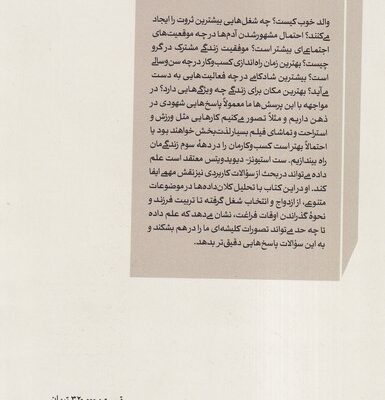 والد خوب کیست؟ چه شغل‌هایی بیشترین ثروت را ایجاد
می‌کنند؟ احتمال مشهورشدن آدم‌ها در چه موقعیت‌های
اجتماعی‌ای بیشتر است؟ موفقیت زندگی مشترک در گرو
چیست؟ بهترین زمان راه‌اندازی کسب‌وکار در چه سن‌وسالی
است؟ بیشترین شادکامی در چه فعالیت‌هایی به دست
می‌آید؟ بهترین مکان برای زندگی چه ویژگی‌هایی دارد؟ در
مواجهه با این پرسش‌ها ما معمولاً پاسخ‌هایی شهودی در
ذهن داریم و مثلاً تصور می‌کنیم کارهایی مثل ورزش و
استراحت و تماشای فیلم بسیار لذت‌بخش خواهند بود یا
احتمالاً بهتر است کسب‌وکارمان را در دههٔ سوم زندگی‌مان
راه بیندازیم. ست استیونز- دیویدویتس معتقد است علم
داده می‌تواند در بحث از سؤالات کاربردی نیز نقش مهمی ایفا
کند. او در این کتاب با تحلیل کلان‌داده‌ها در موضوعات
متنوعی، از ازدواج و انتخاب شغل گرفته تا تربیت فرزند و
نحوهٔ گذراندن اوقات فراغت، نشان می‌دهد که علم داده
تا چه حد می‌تواند تصورات کلیشه‌ای ما را در هم بشکند و
به این سؤالات پاسخ‌هایی دقیق‌تر بدهد.